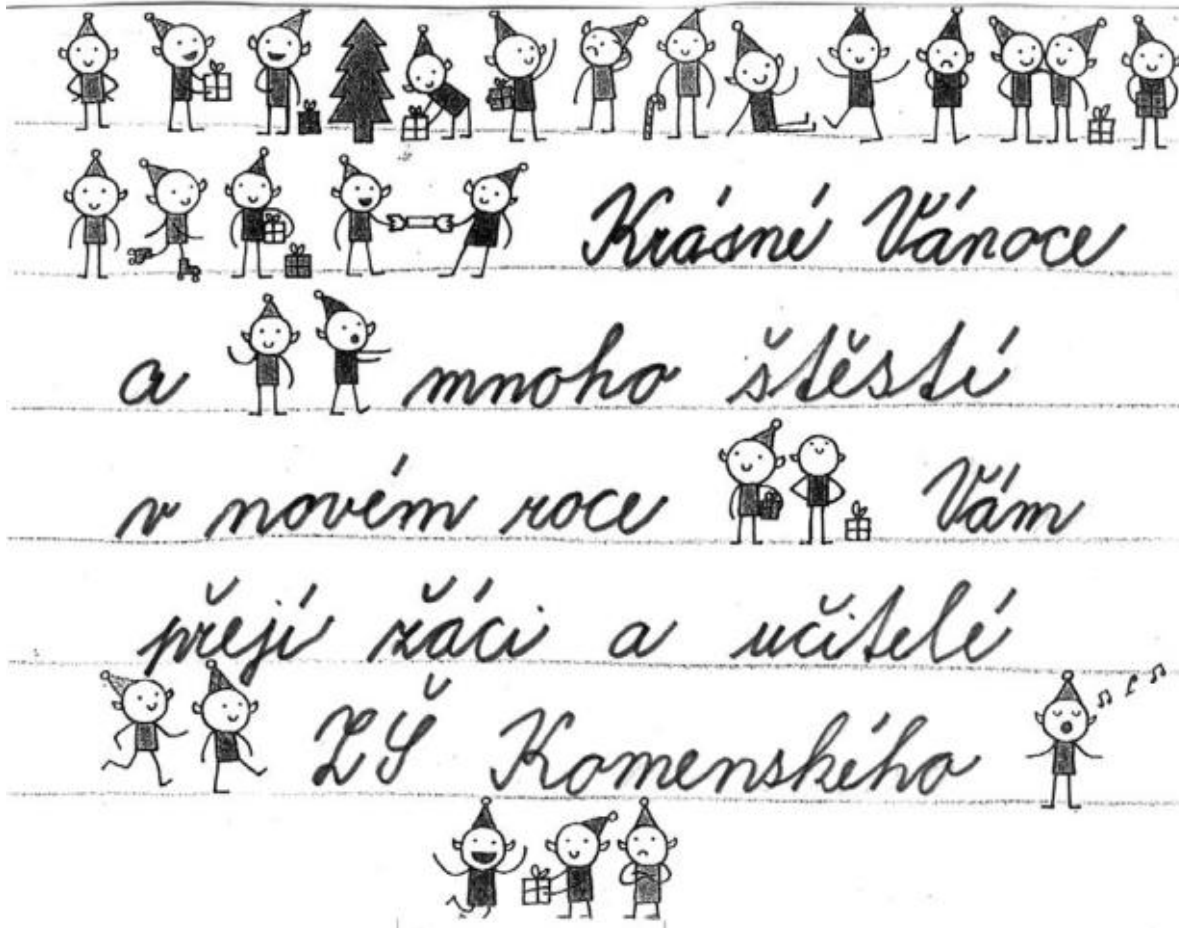 Krásné Vánoce
a mnoho štěstí
v novém roce Vám
přejí žáci a učitelé
ZŠ Komenského